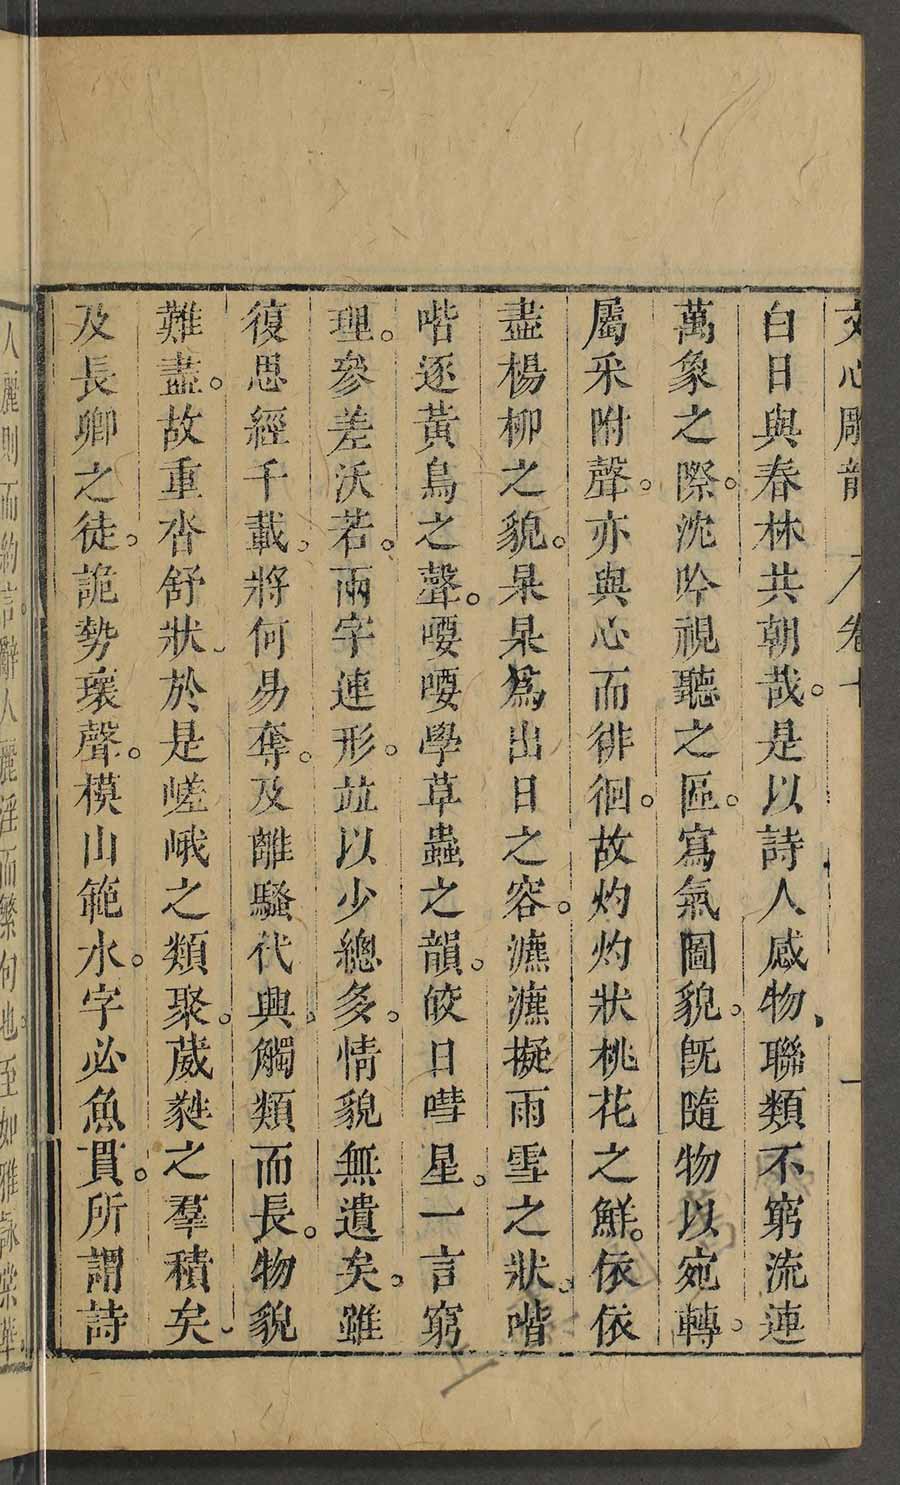 文心雕龍 卷十 一
白日與春林共朝哉。是以詩人感物、聯類不窮流連
萬象之際。沈吟視聽之區。寫氣圖貌。旣隨物以宛轉。
屬采附聲。亦與心而徘徊。故灼灼狀桃花之鮮。依依
盡楊柳之貌。杲杲爲出日之容。瀌瀌擬雨雪之狀。喈
喈逐黃鳥之聲。喓喓學草蟲之韻。皎日嘒星。一言窮
理。參差沃若。兩字連形。竝以少總多。情貌無遺矣。雖
復思經千載。將何易奪。及離騷代興。觸類而長。物貌
難盡。故重沓舒狀、於是嵯峨之類聚。葳蕤之羣積矣、
及長卿之徒。詭勢瓌聲。模山範水。字必魚貫。所謂詩
人麗則而約言。辭人麗淫而繁句也。至如雅詠棠華